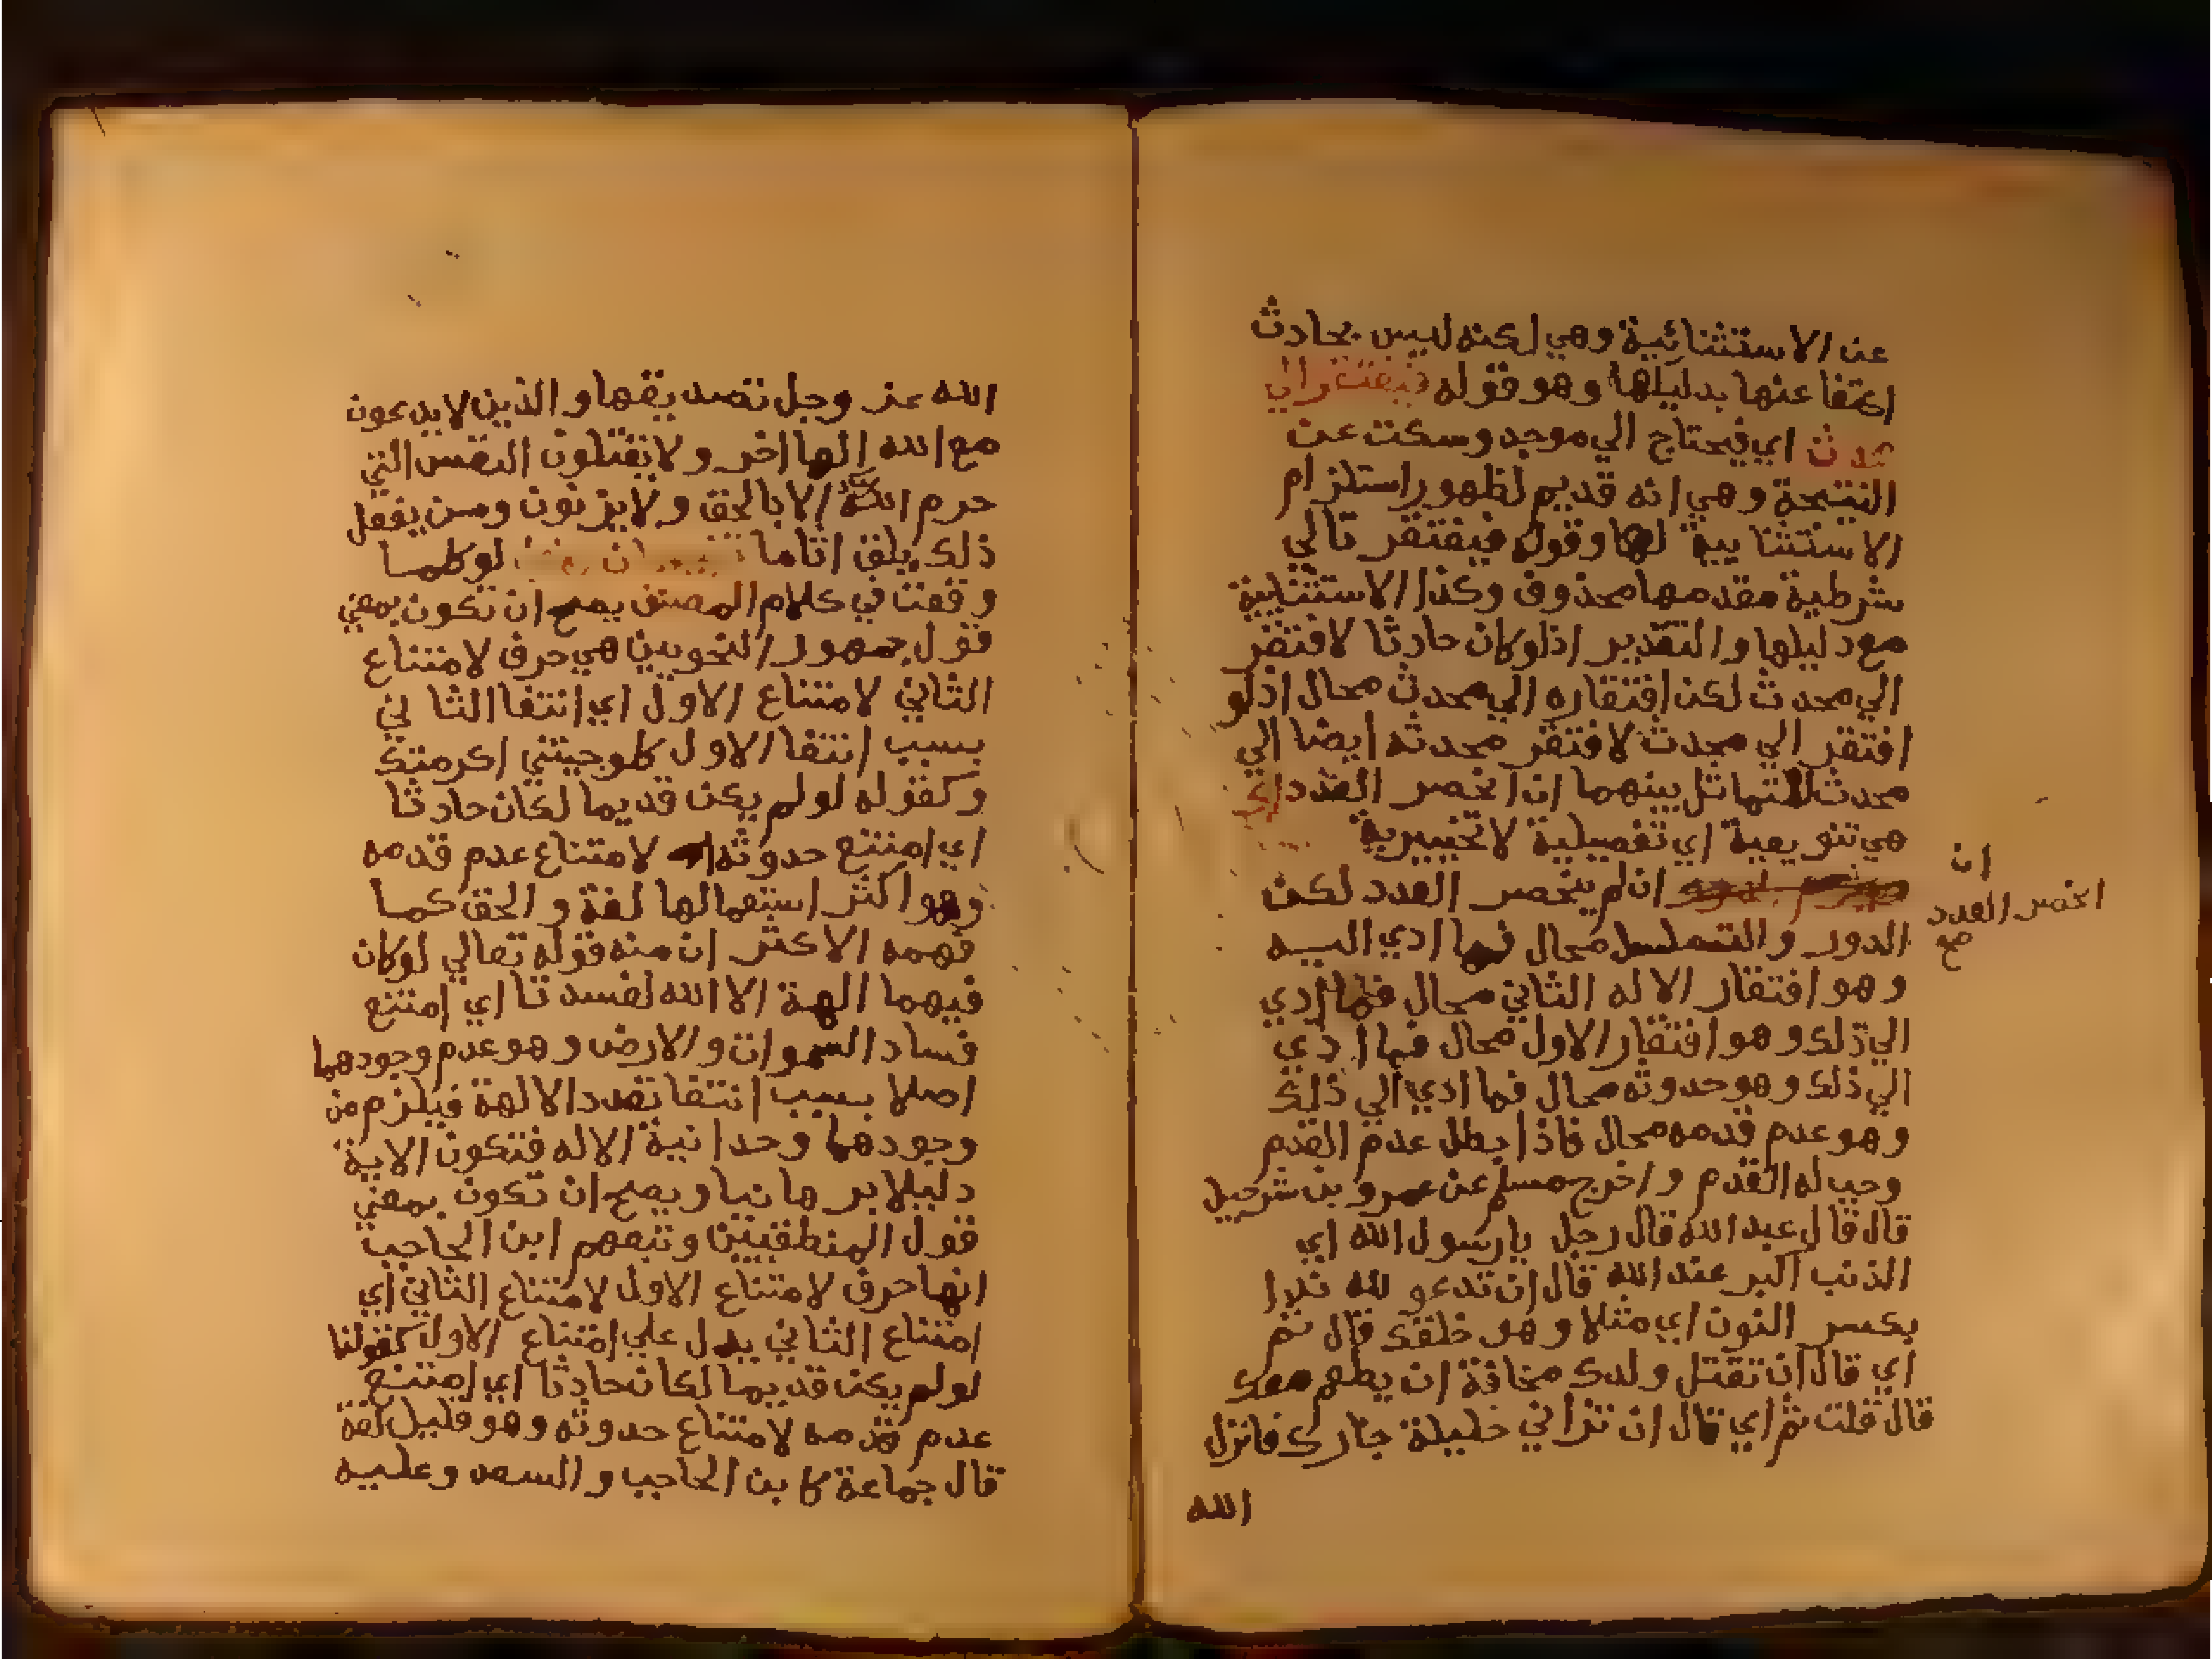 عن الاستثنائية وهي لكنه ليس بحادث
اكتفا عنها بدليلها وهو قوله فيفتقر الي
محدث اي فيحتاج الي موجد وسكت عن
النتيجة وهي انه قديم لظهور استلزام
الاستثنايية لها وقوله فيفتقر تالي
شرطية مقدمها محذوف وكذا الاستثنايية
مع دليلها والتقدير اذ لو كان حادثا لافتقر
الي محدث لكن افتقاره الي محدث محال اذ لو
افتقر الي محدث لافتقر محدثه ايضا الي
محدث للتماثل بينهما ان انحصر العدد
هي تنويعية اي تفصيلية لا تخييرية
ان لم ينحصر العدد لكن
ان
انحصر العدد
صح
الدور والتسلسل محال فما ادي اليه
وهو افتقار الاله الثاني محال فما ادي
الي ذلك وهو افتقار الاول محال فما ادي
الي ذلك وهو حدوثه محال فما ادي الي ذلك
وهو عدم قدمه محال فاذا بطل عدم القدم
وجب له القدم واخرج مسلم عن عمرو بن شرحبيل
قال قال عبد الله قال رجل يا رسول الله اي
الذنب اكبر عند الله قال ان تدعو لله ندا
بكسر النون اي مثلا وهو خلقك قال ثم
اي قال ان تقتل ولدك مخافة ان يطعم معك
قال قلت ثم اي قال ان تزاني حليلة جارك فانزل
الله
الله عز وجل تصديقها والذين لا يدعون
مع الله الها اخر ولا يقتلون النفس التي
حرم الله الا بالحق ولا يزنون ومن يفعل
ذلك يلق اثاما لو كلما
وقعت في كلام المصنف يصح ان تكون بمعني
قول جمهور النحويين هي حرف لامتناع
الثاني لامتناع الاول اي انتفا الثاني
بسبب انتفا الاول كلو جيتني اكرمتك
وكقوله لو لم يكن قديما لكان حادثا
اي امتنع حدوثه لامتناع عدم قدمه
وهو اكثر استعمالها لغة والحق كما
فهمه الاكثر ان منه قوله تعالي لو كان
فيهما الهة الا الله لفسدتا اي امتنع
فساد السموات والارض وهو عدم وجودهما
اصلا بسبب انتفا تعدد الالهة فيلزم من
وجودهما وحدانية الاله فتكون الاية
دليلا برهانيا ويصح ان تكون بمعني
قول المنطقيين وتبعهم ابن الحاجب
انها حرف لامتناع الاول لامتناع الثاني اي
امتناع الثاني يدل علي امتناع الاول كقولنا
لو لم يكن قديما لكان حادثا اي امتنع
عدم قدمه لامتناع حدوثه وهو قليل لغة
قال جماعة كابن الحاجب والسعد وعليه